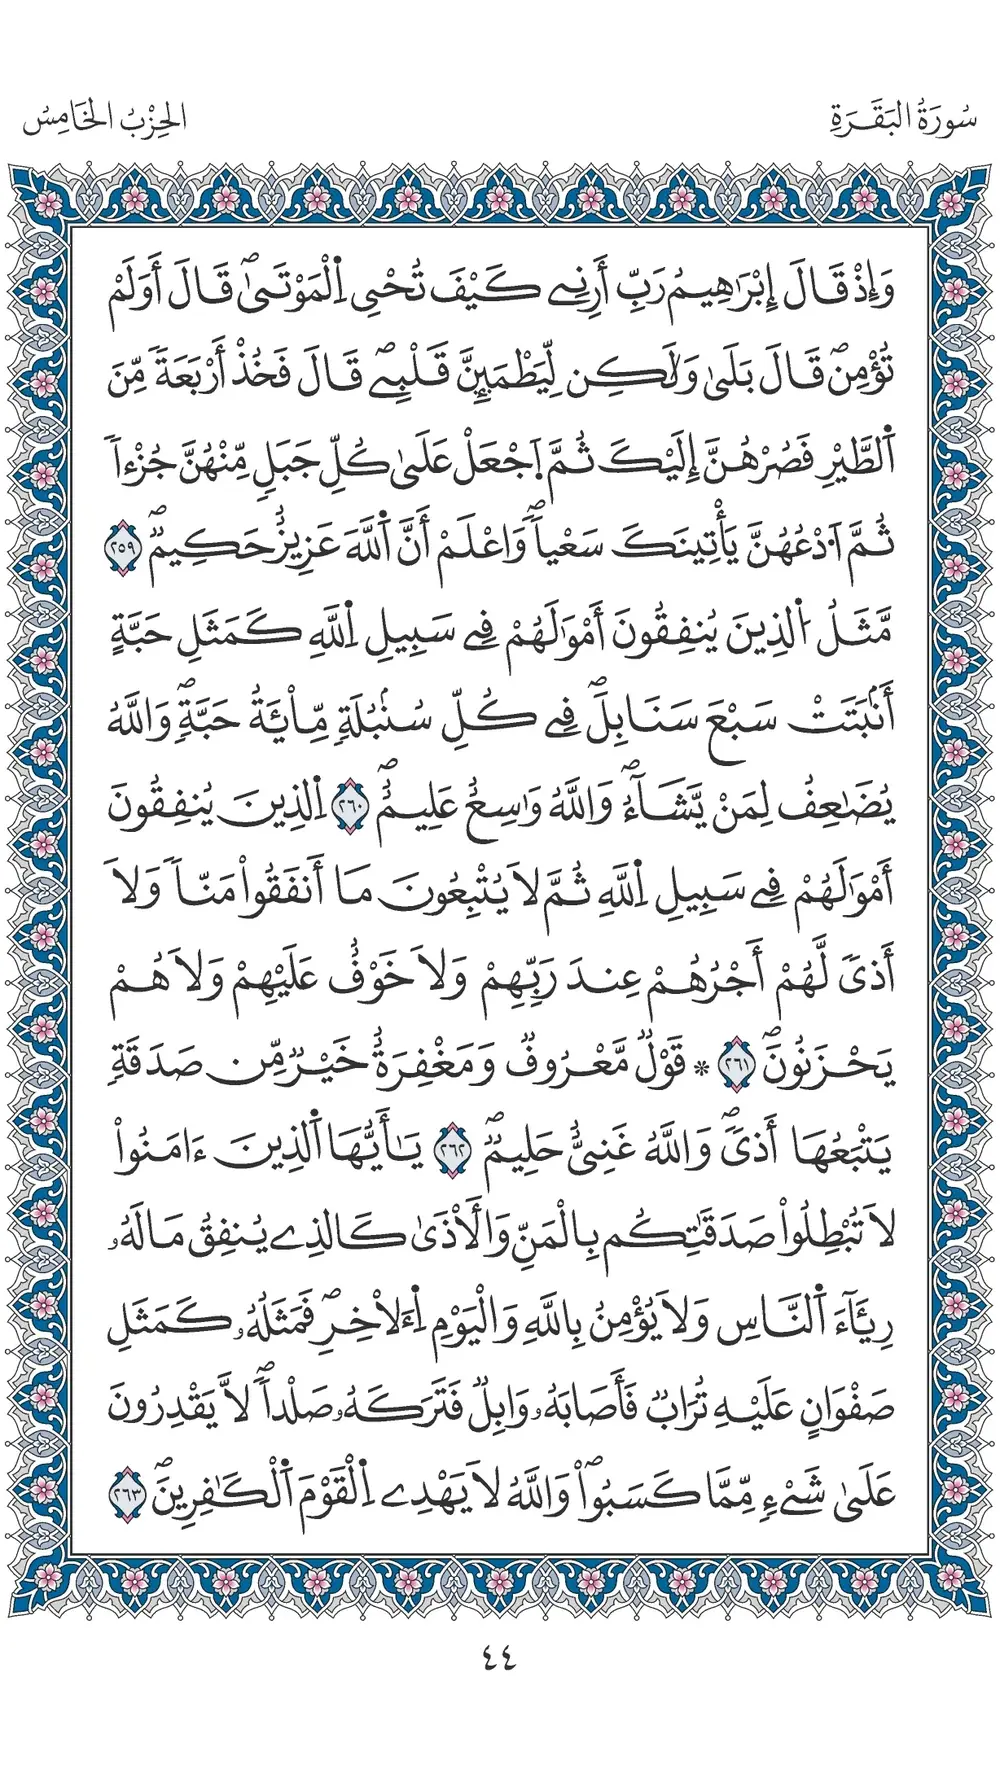 سُورَةُ الْبَقَرَةِ
الْحِزْبُ الْخَامِسُ
وَإِذْ قَالَ إِبْرَٰهِيمُ رَبِّ أَرِنِے كَيْفَ تُحْيِ اِ۬لْمَوْتَىٰۖ قَالَ أَوَلَمْ
تُؤْمِنۖ قَالَ بَلَىٰ وَلَٰكِن لِّيَطْمَئِنَّ قَلْبِےۖ قَالَ فَخُذْ أَرْبَعَةٗ مِّنَ
اَ۬لطَّيْرِ فَصُرْهُنَّ إِلَيْكَ ثُمَّ اَ۪جْعَلْ عَلَىٰ كُلِّ جَبَلٖ مِّنْهُنَّ جُزْءاٗ
ثُمَّ اَ۟دْعُهُنَّ يَأْتِينَكَ سَعْياٗۖ وَاعْلَمْ أَنَّ اَ۬للَّهَ عَزِيزٌ حَكِيمٞۖ ٢٥٩
مَّثَلُ اُ۬لذِينَ يُنفِقُونَ أَمْوَٰلَهُمْ فِے سَبِيلِ اِ۬للَّهِ كَمَثَلِ حَبَّةٍ
أَنۢبَتَتْ سَبْعَ سَنَابِلَۖ فِے كُلِّ سُنۢبُلَةٖ مِّاْئَةُ حَبَّةٖۖ وَاللَّهُ
يُضَٰعِفُ لِمَنْ يَّشَآءُۖ وَاللَّهُ وَٰسِعٌ عَلِيمٌۖ ٢٦٠ اِ۬لذِينَ يُنفِقُونَ
أَمْوَٰلَهُمْ فِے سَبِيلِ اِ۬للَّهِ ثُمَّ لَا يُتْبِعُونَ مَا أَنفَقُواْ مَنّاٗ وَلَا
أَذىٗ لَّهُمْ أَجْرُهُمْ عِندَ رَبِّهِمْ وَلَا خَوْفٌ عَلَيْهِمْ وَلَا هُمْ
يَحْزَنُونَۖ ٢٦١ * قَوْلٞ مَّعْرُوفٞ وَمَغْفِرَةٌ خَيْرٞ مِّن صَدَقَةٖ
يَتْبَعُهَا أَذىٗۖ وَاللَّهُ غَنِيٌّ حَلِيمٞۖ ٢٦٢ يَٰأَيُّهَا اَ۬لذِينَ ءَامَنُواْ
لَا تُبْطِلُواْ صَدَقَٰتِكُم بِالْمَنِّ وَالْأَذَىٰ كَالذِے يُنفِقُ مَالَهُۥ
رِئَآءَ اَ۬لنَّاسِ وَلَا يُؤْمِنُ بِاللَّهِ وَالْيَوْمِ اِ۬لْأٓخِرِۖ فَمَثَلُهُۥ كَمَثَلِ
صَفْوَانٍ عَلَيْهِ تُرَابٞ فَأَصَابَهُۥ وَابِلٞ فَتَرَكَهُۥ صَلْداٗۖ لَّا يَقْدِرُونَ
عَلَىٰ شَےْءٖ مِّمَّا كَسَبُواْۖ وَاللَّهُ لَا يَهْدِے اِ۬لْقَوْمَ اَ۬لْكَٰفِرِينَۖ ٢٦٣
٤٤